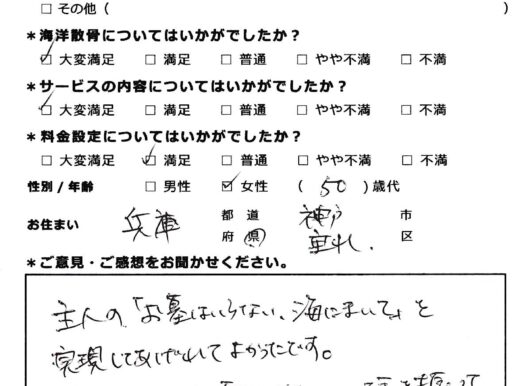 □ その他（ ）
＊海洋散骨についてはいかがでしたか？
☑ 大変満足 □ 満足 □ 普通 □ やや不満 □ 不満
＊サービスの内容についてはいかがでしたか？
☑ 大変満足 □ 満足 □ 普通 □ やや不満 □ 不満
＊料金設定についてはいかがでしたか？
□ 大変満足 ☑ 満足 □ 普通 □ やや不満 □ 不満
性別 / 年齢 □ 男性 ☑ 女性 （ 50 ）歳代
お住まい 兵庫 都 道 府 県 神戸 垂水 市 区
＊ご意見・ご感想をお聞かせください。
主人の「お墓はいらない、海にまいて」と
実現してあげれてよかったです。